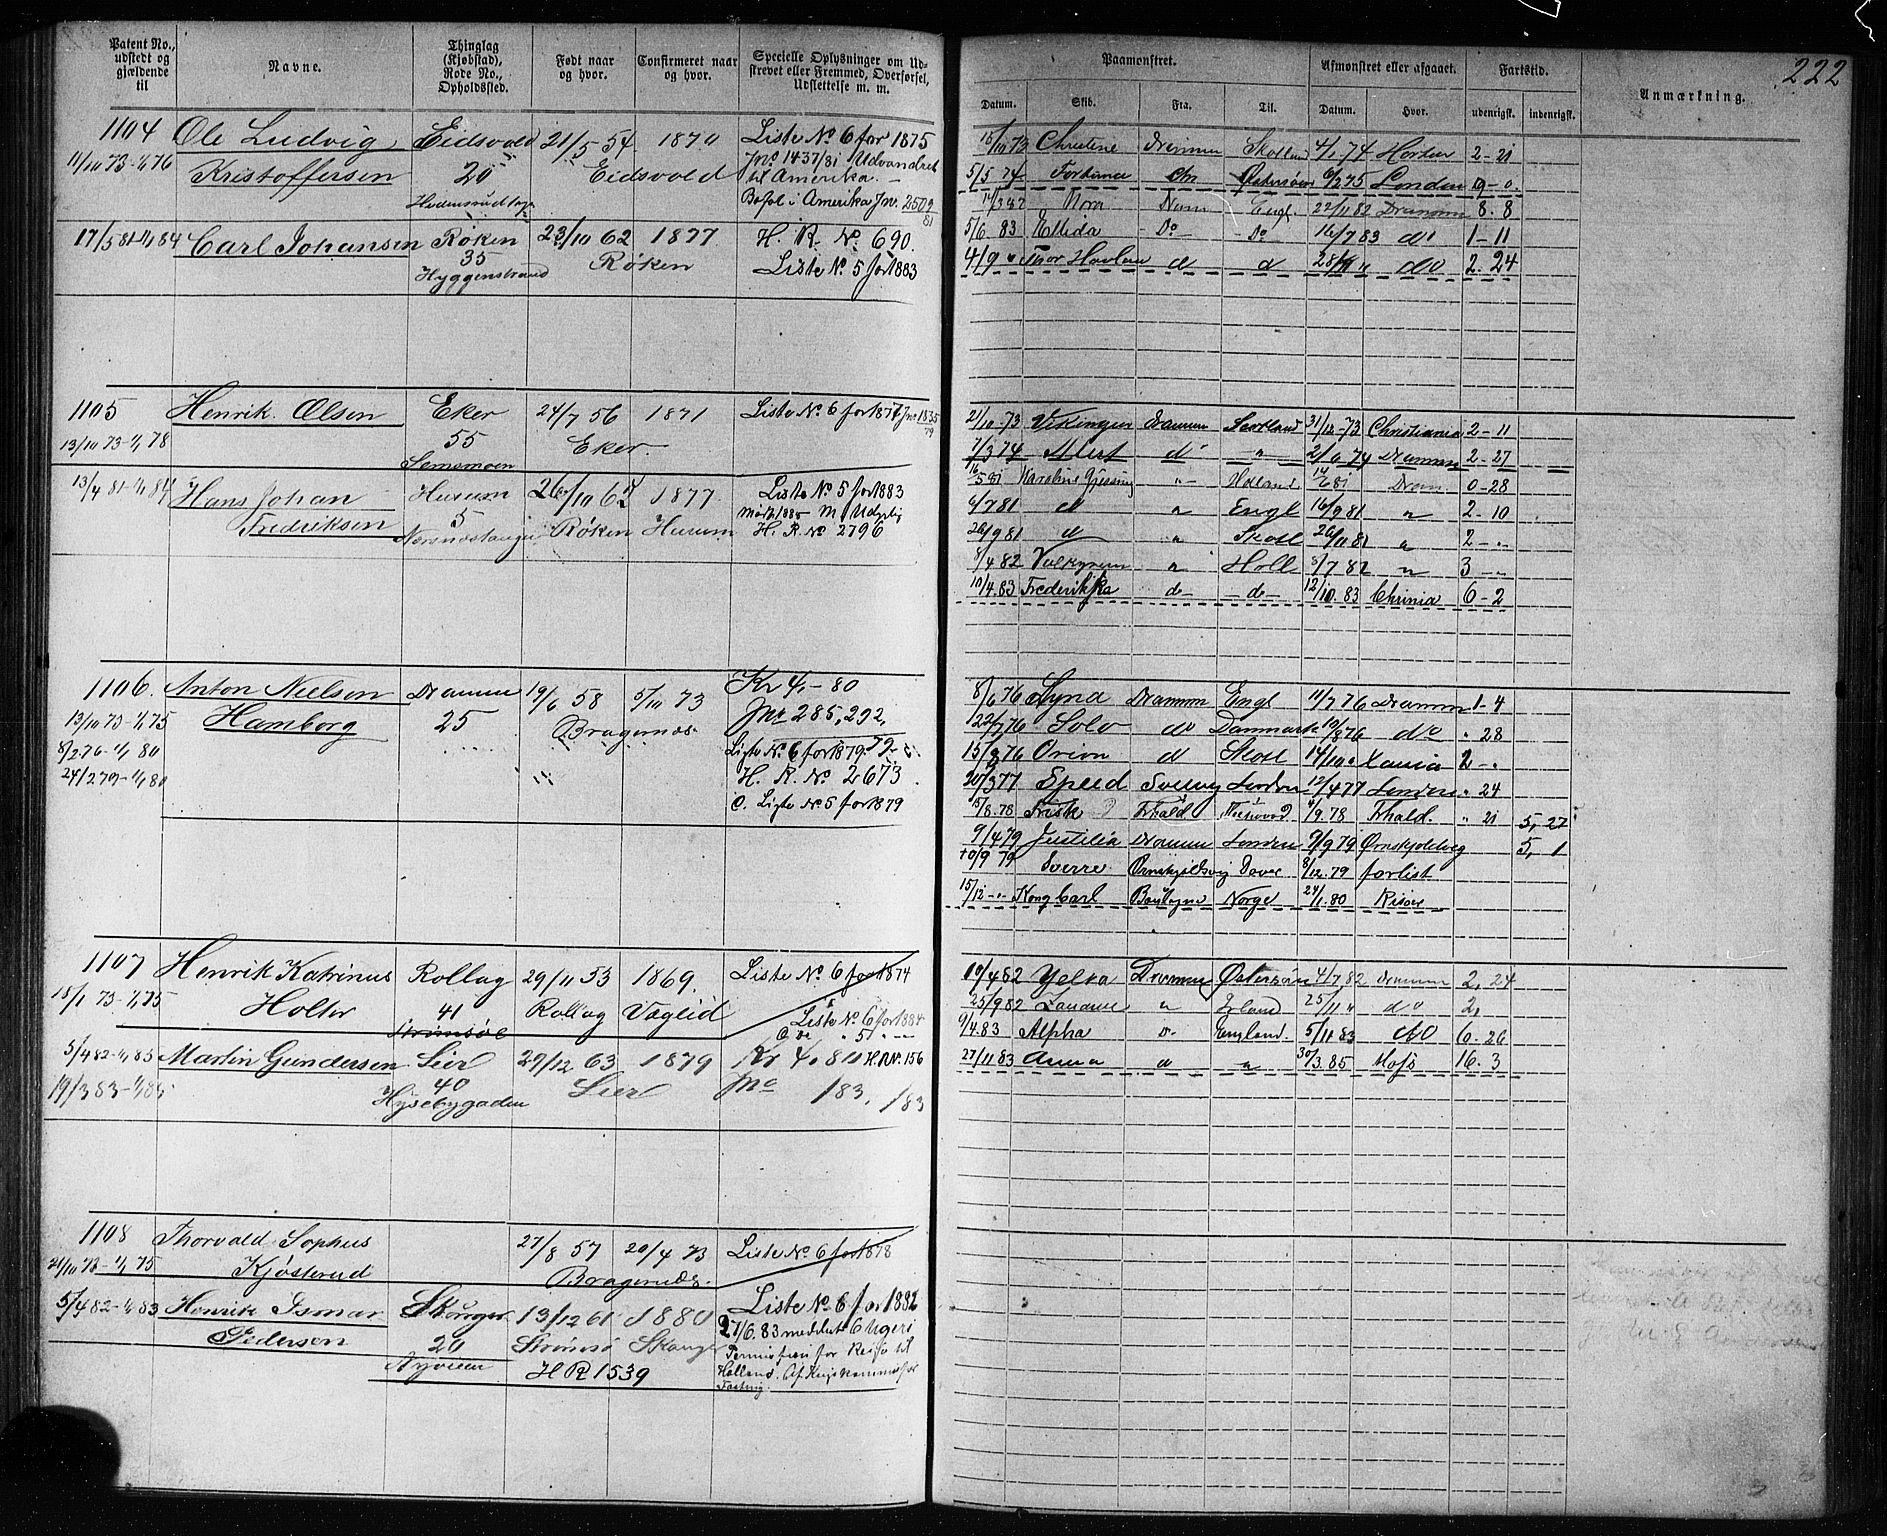 222
Patent No., udstedt og gjældende til
Navne.
Thinglag (Kjøbstad), Rode No., Opholdssted.
Født naar og hvor.
Confirmeret naar og hvor.
Specielle Oplysninger om Udskrevet eller Fremmed, Overførsel, Udslettelse m. m.
Paamønstret.
Afmønstret eller afgaaet.
Fartstid.
Anmærkning.
Datum. Skib. Fra. Til. Datum. Hvor. udenrigsk. indenrigsk.
1104 Ole Ludvig Eidsvold 21/5 54 1870 Liste No 6 for 1875
11/10 73-1/1 76 Kristoffersen 20 Eidsvold Jno 1437/81 Udvandret
til Amerika.
Bosat i Amerika Jn. 2509/81
17/5 81-1/1 84 Carl Johansen Røken 23/10 62 1877 H. R. No 690.
35 Røken Liste No 5 for 1883
Hyggenstrand
15/10 73 Christine Drammen Skotland 4/1 74 Horten 2-21
5/5 74 Fortuna Østersøen 6/2 75 London 9-0
Dram Engl. 22/11 82 Drammen 8.8
5/6 83 Ellida Do Do 16/7 83 do 1-11
4/9 " Thor Havlan d d 28/11 " do 2.24
1105 Henrik Olsen Eker 24/7 56 1871 Liste No 6 for 1877 Jno 1835/79
13/10 73-1/1 78 55 Eker.
Semsmoen
13/4 81-1/1 84 Hans Johan Hurum 26/10 62 1877 Liste No 5 for 1883
Fredriksen 5 Røken Hurum
H. R. No 2796
21/10 73 Vikingen Drammen Scotland 31/12-73 Christiania 2-11
7/3 74 Alert d " 2/6 74 Drammen 2-27
16/5 81 Karoline Gjessing "- Holland 14/6 81 Dram 0-28
6/7 81 d " Engl 16/9 81 " 2-10
26/9 81 d " Skotl 26/11 81 " 2-"
8/4 82 Valkyrien " Holl 8/7 82 " 3-"
10/4.83 Frederikka d- -de- 12/10.83 Chrinia 6-2
1106. Anton Nielsen Drammen 19/6 58 5/10 73 Kr 4-80
13/10 73-1/1 75 Hamborg 25 Bragernæs. Jno 285, 292,
8/2 76-1/1 80 Liste No 6 for 1879
24/2 79-1/1 80 H. R. No 2673
C. Liste No 5 for 1879
8/6 76 Lyna Drammen Engl 11/7 76 Drammen 1-4
22/7 76 Solo do Danmark 19/8 76 do " 28
15/8 76 Orion d Skotl 14/10 " Xania 2-"
20/3 77 Speed London 12/4 77 London " 24
18/8.78 Frisk Frhald 4/9.78 Frhald. " 21 5,27
9/4 79 Justitia Drammen London 9/9 79 Ørnskjoldsvig 5,1
10/9 79 Sverre Ørnskjoldsvig Dover 8/12.79 forlist
15/12 " Kong Carl Norge 24/1.80 Risøer
1107 Henrik Katrinus Rollag 29/11 53 1869. Liste No 6 for 1874
15/1 73-1/1 75 Holter 41 Rollag Væglid
Strømsøe
Liste No 6 for 1884
5/4 82-1/1 85 Martin Gundersen Lier 29/12 63 1879 Kr 4.80 H.R.No. 156
19/3 83-1/1 85 40 Lier Jno 183, 183
Hysebygaden
19/4 82 Yelka Drammen Østersøen 4/7 82 Drammen 2,24
25/9 82 " 25/11 " do 2,
9/4.83 Alpha d- England. 5/11 83 do 6-26
27/11 83 Anna d " 30/3.85 Moss 16.3
1108 Thorvald Sophus 27/8 57 20/4 73 Liste No 6 for 1878
21/10 73-1/1 75 Kjøsterud Bragernæs.
5/4 82-1/1 83 Henrik Ismar Skouger 13/12 61 1880 Liste No 6 for 1882
Pedersen 20 Strømsø Skouger 27/6.83 meddelt 6 Uger
H R 1539 Permission for Reise til
Holland. Af Krigskommissær
Fasting.